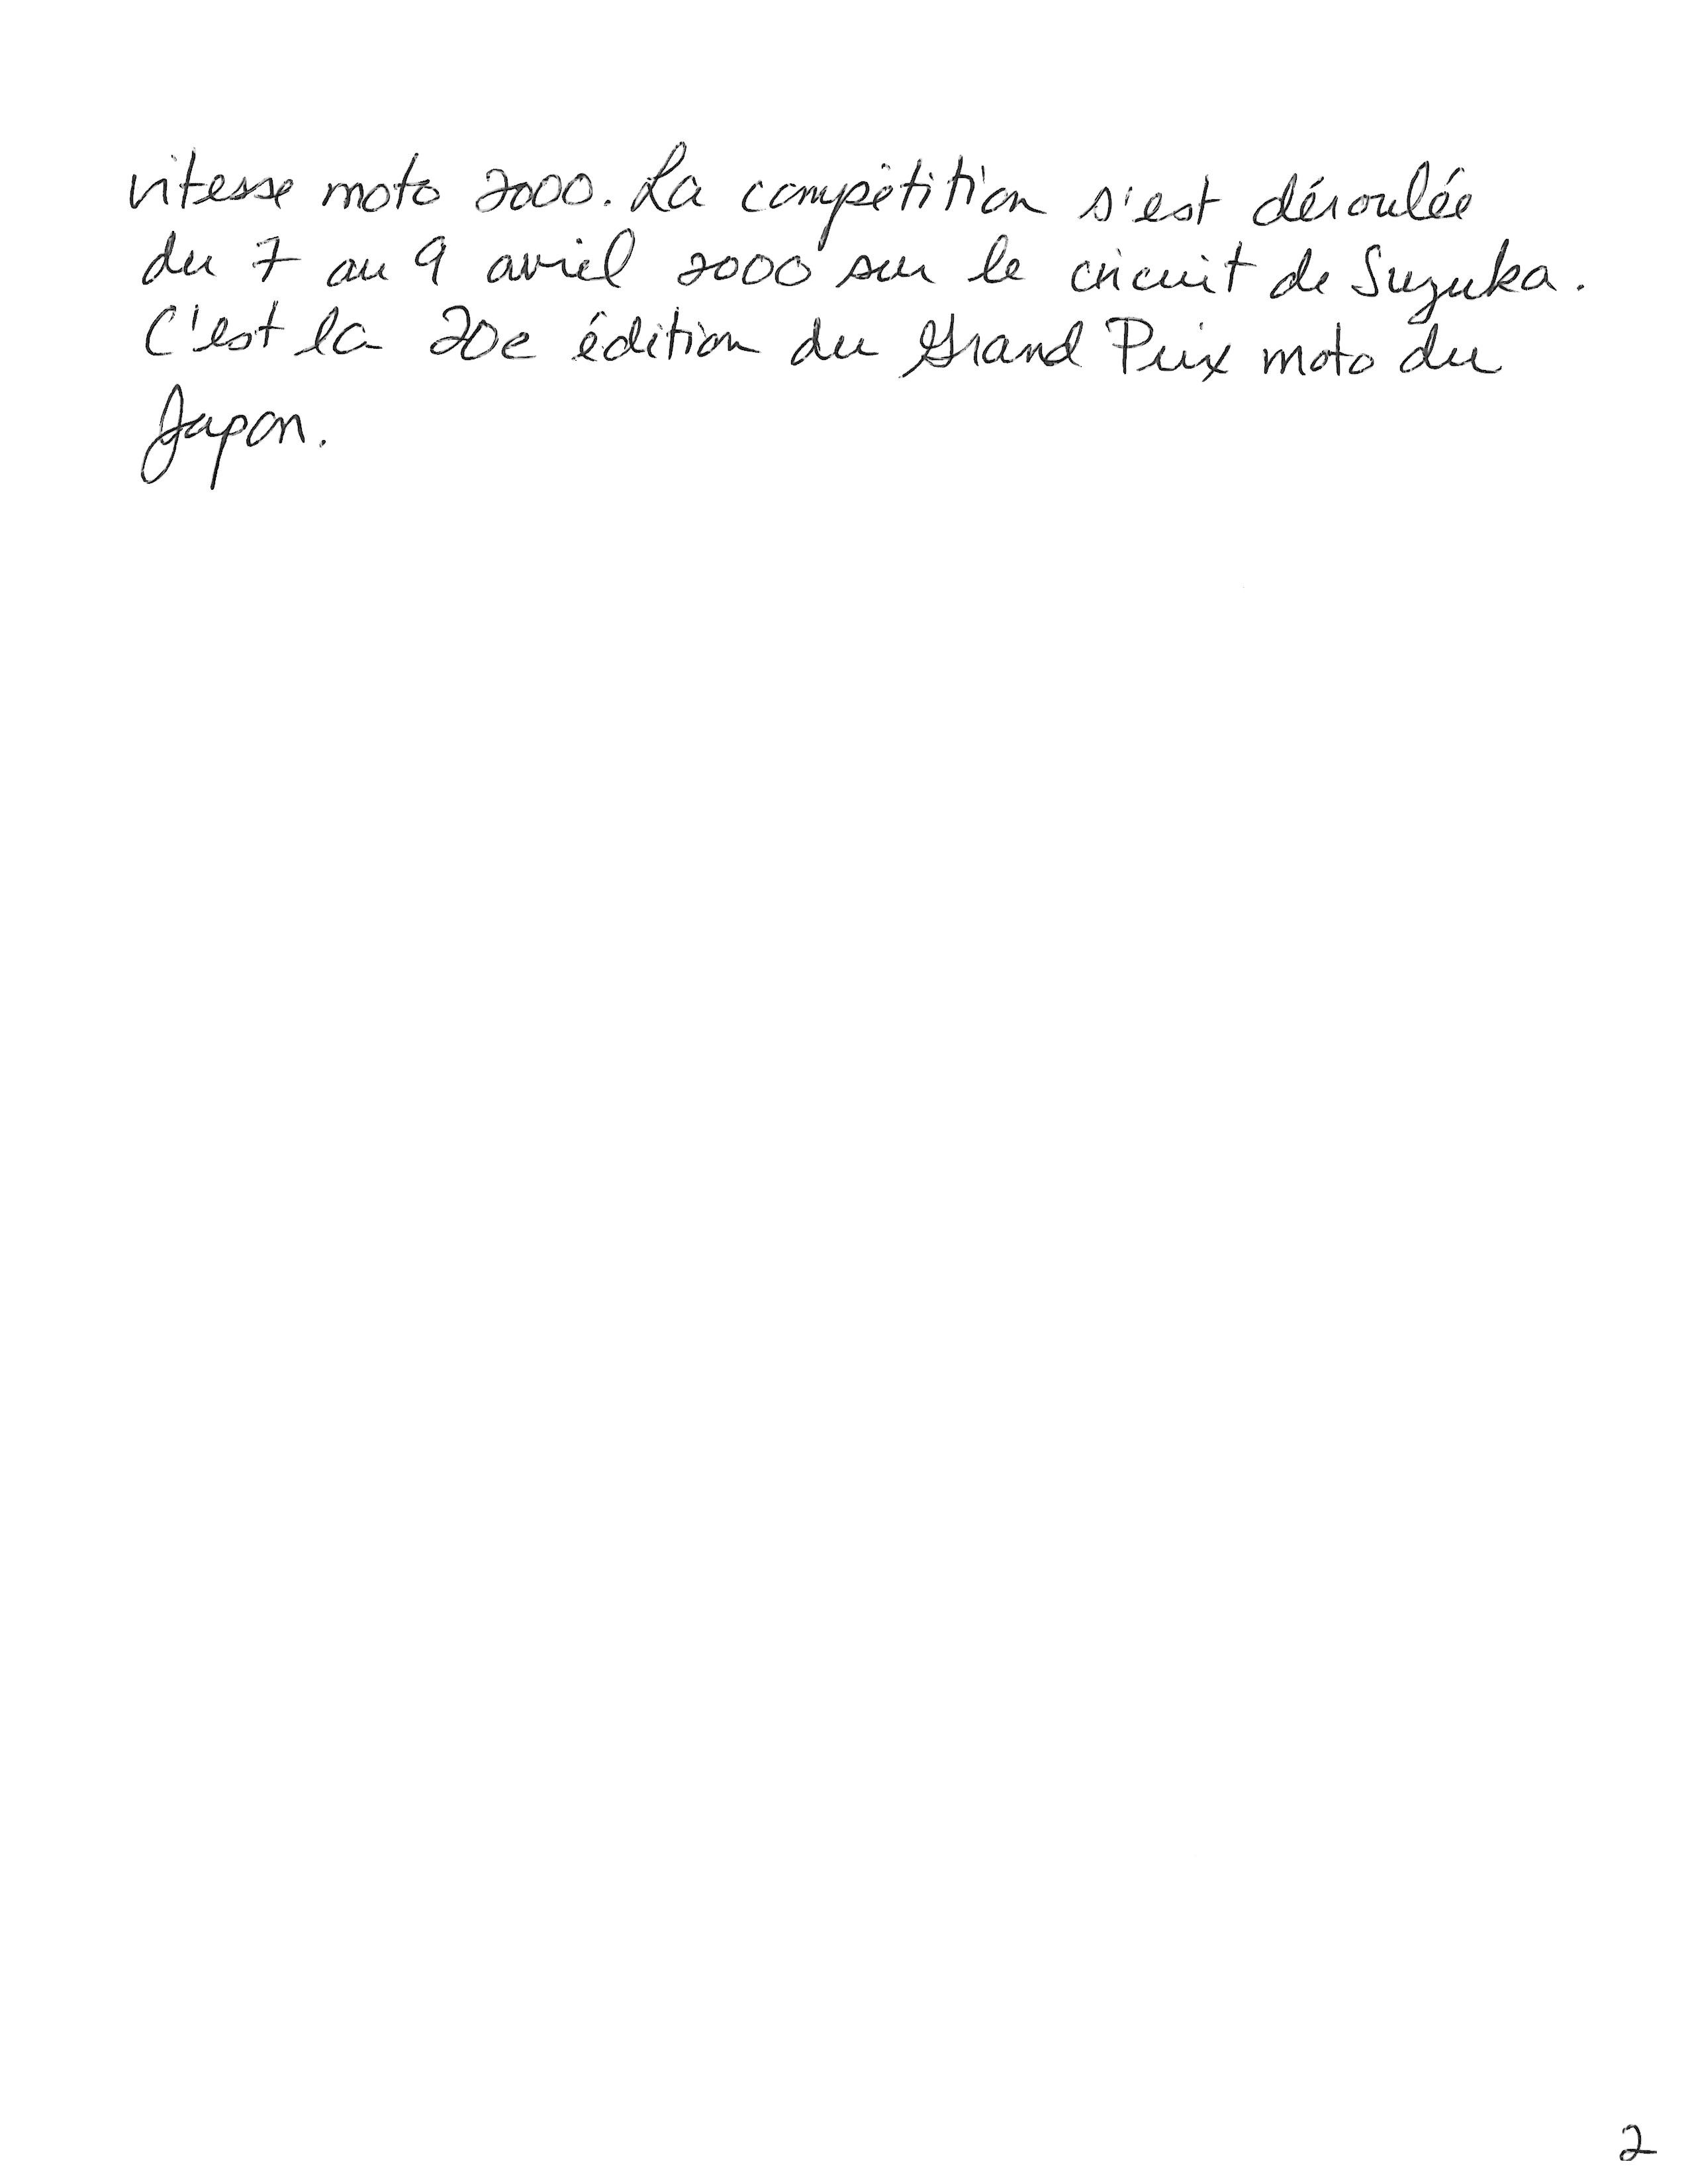 vitesse moto 2000. La compétition s'est déroulée
du 7 au 9 avril 2000 sur le circuit de Suzuka.
C'est la 20e édition du Grand Prix moto du
Japon.
2